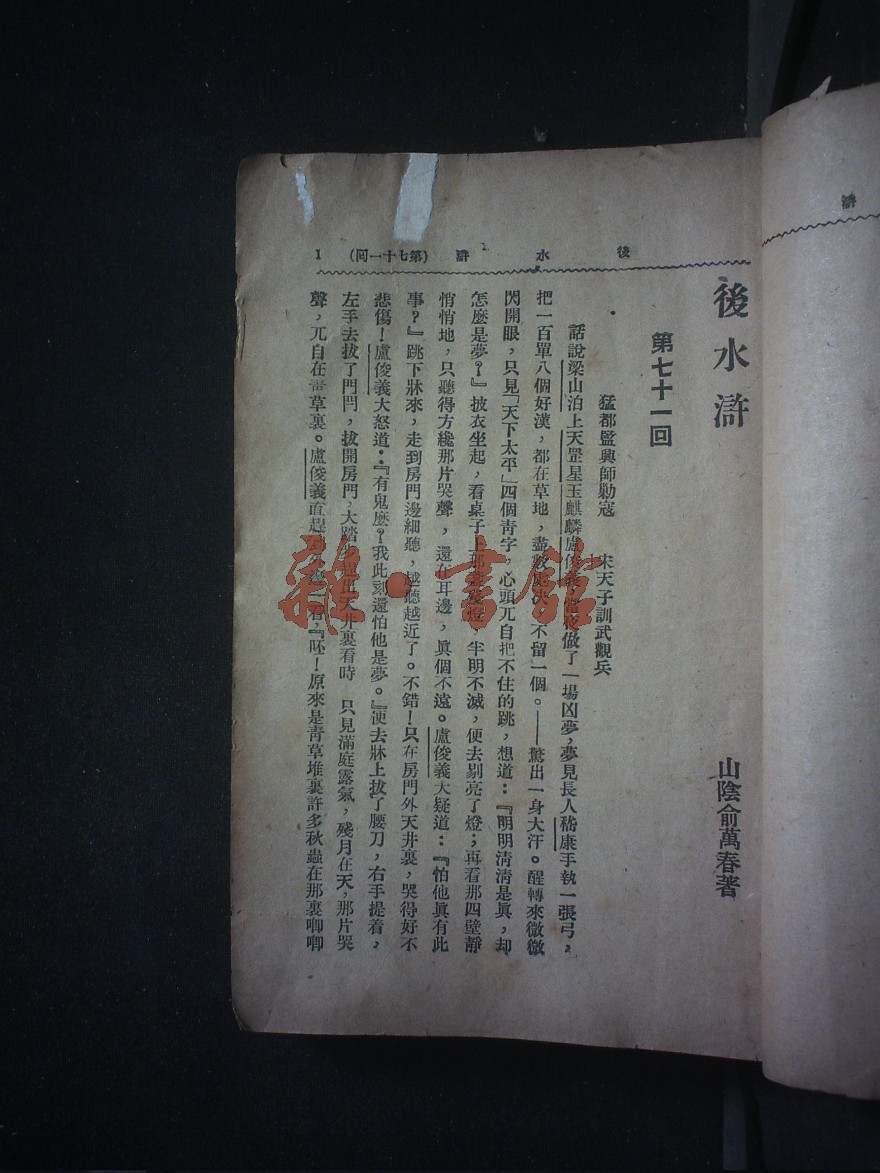 後水滸
山陰俞萬春著
第七十一回
猛都監興師勦寇　宋天子訓武觀兵
後　水　滸　(第七十一回)　1
話說梁山泊上天罡星玉麒麟盧俊義,做了一場凶夢,夢見長人嵇康手執一張弓,
把一百單八個好漢,都在草地,盡數處決,不留一個。——驚出一身大汗。醒轉來微微
閃開眼,只見「天下太平」四個靑字,心頭兀自把不住的跳,想道:『明明淸淸是眞,却
怎麼是夢?』披衣坐起,看桌子上那燈,半明不滅,便去剔亮了燈;再看那四壁靜
悄悄地,只聽得方纔那片哭聲,還在耳邊,眞個不遠。盧俊義大疑道:『怕他眞有此
事?』跳下牀來,走到房門邊細聽,越聽越近了。不錯!只在房門外天井裏,哭得好不
悲傷!盧俊義大怒道:『有鬼麼?我此刻還怕他是夢。』便去牀上拔了腰刀,右手提着,
左手去拔了門閂,拔開房門,大踏出天井裏看時　只見滿庭露氣,殘月在天,那片哭
聲,兀自在靑草裏。盧俊義直趕看,『呸!原來是靑草堆裏許多秋蟲在那裏唧唧
雜·書館
滸